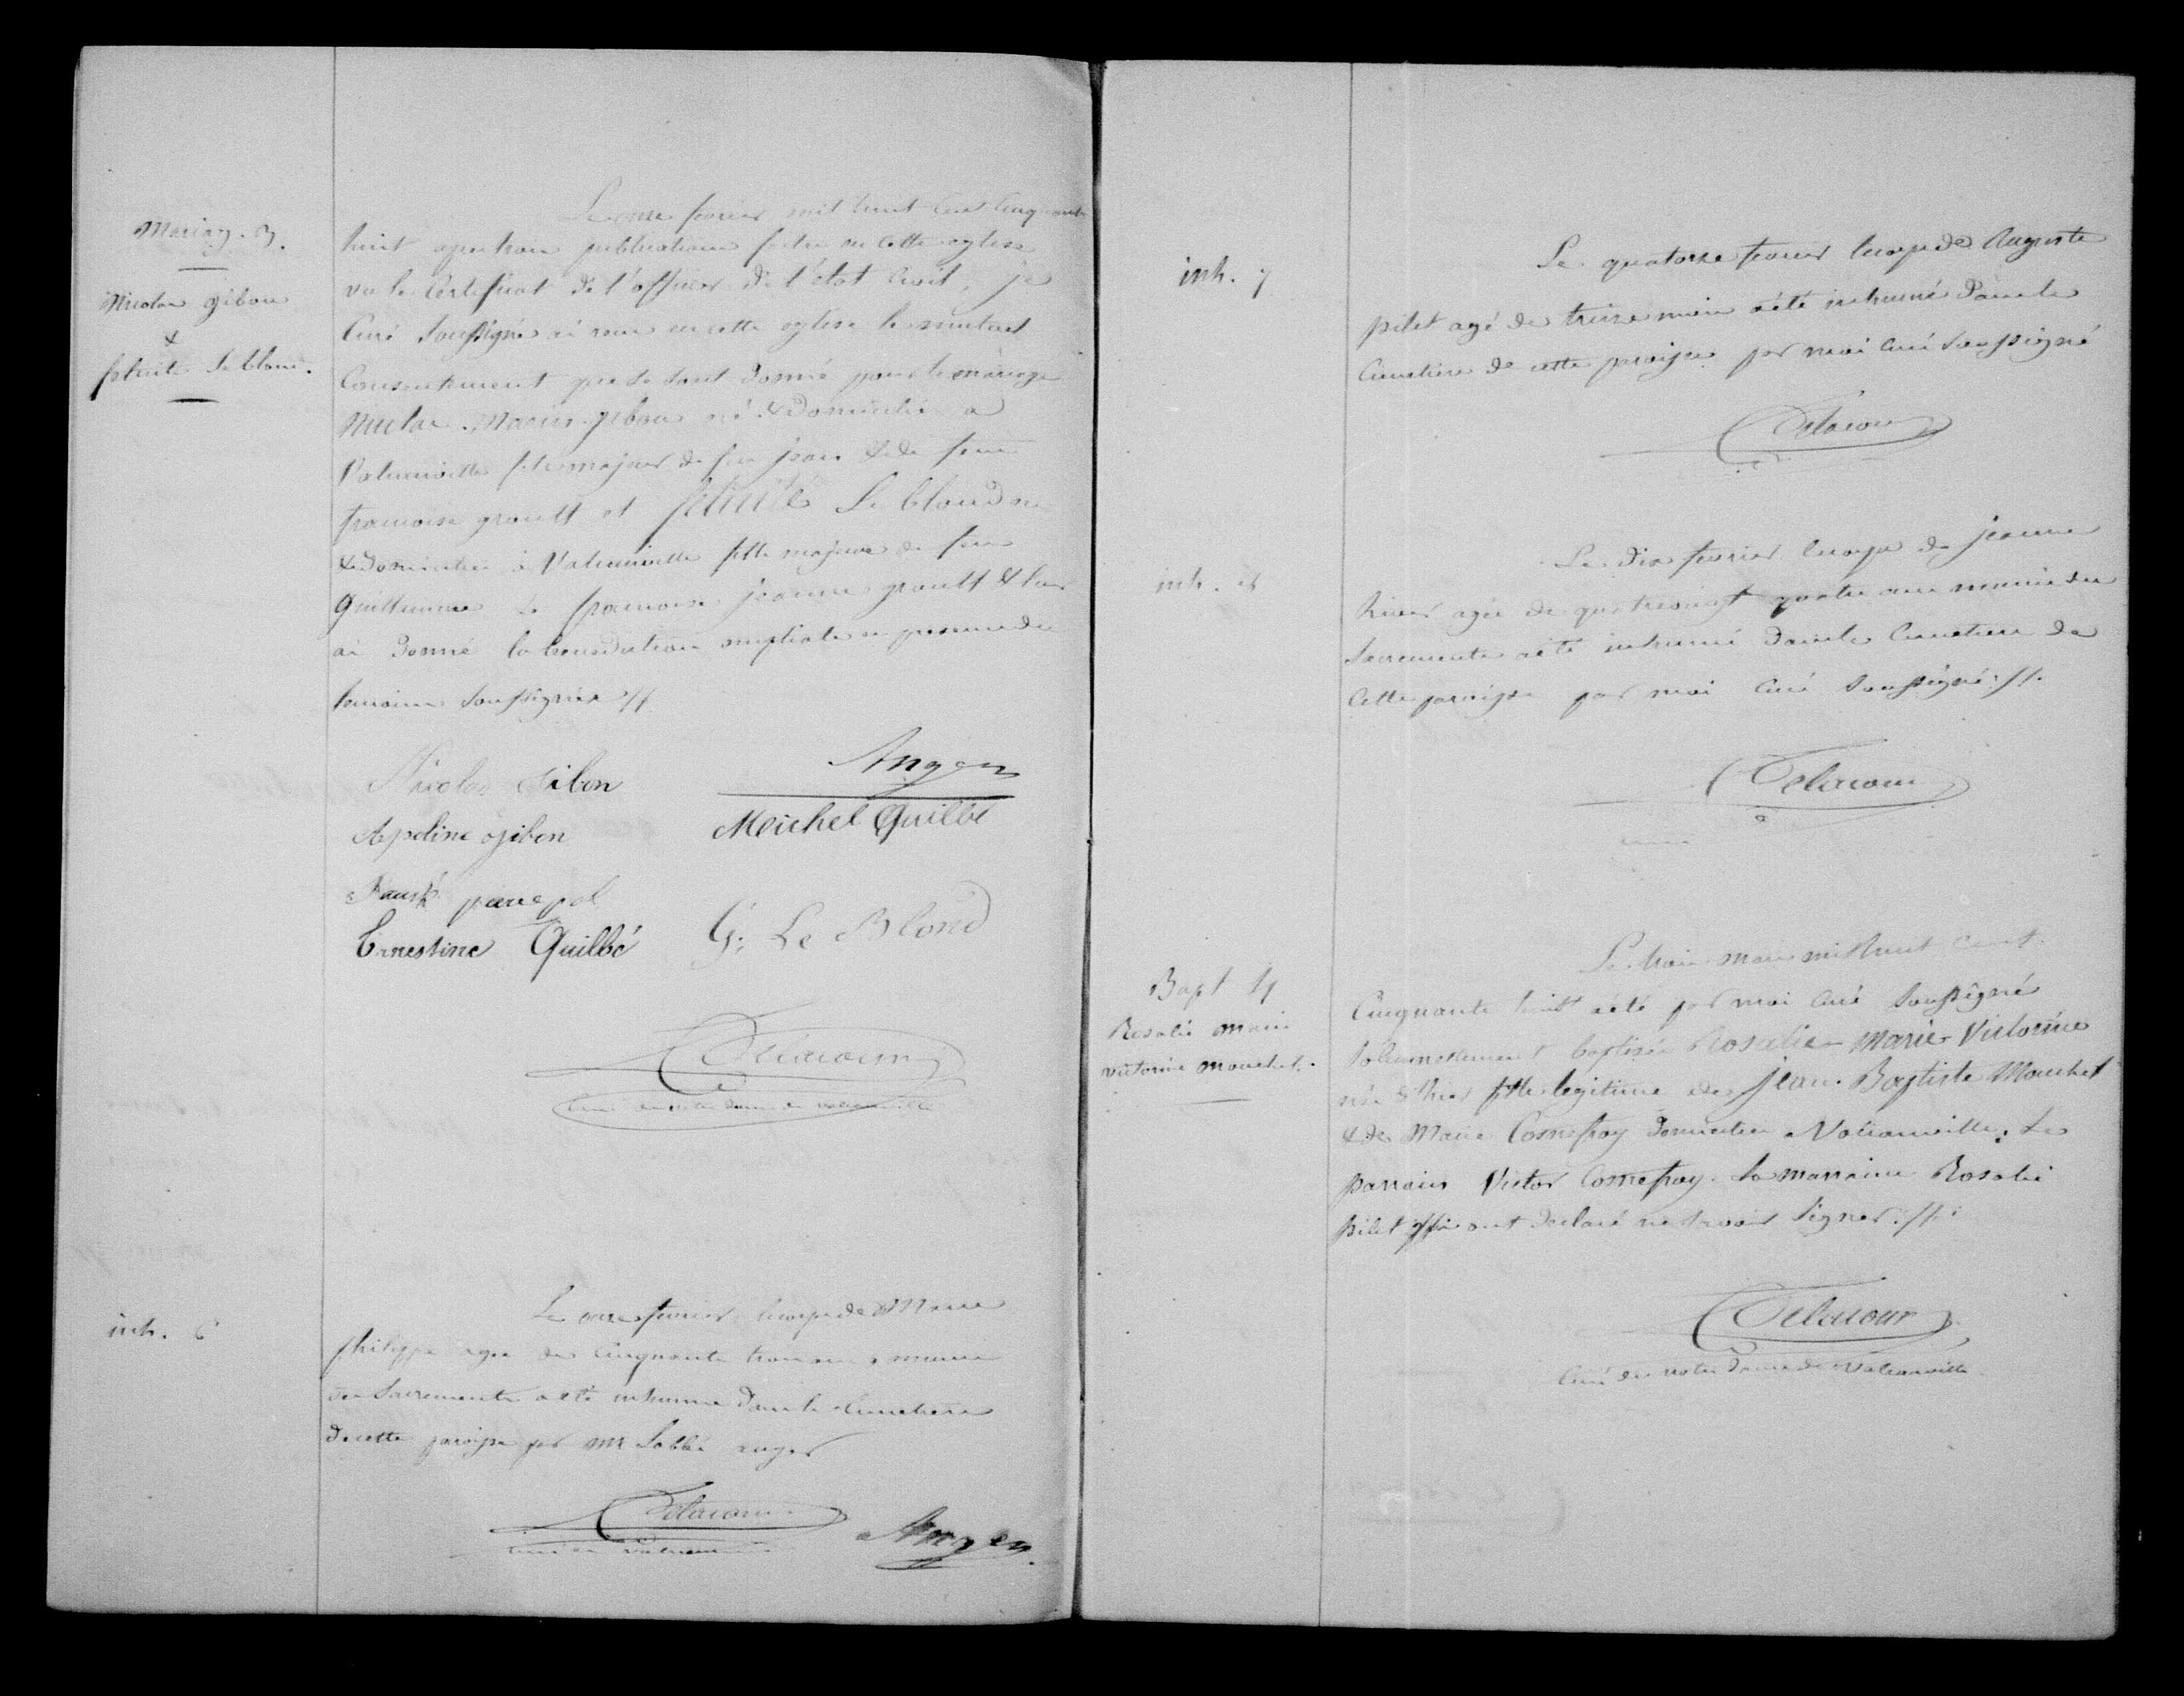 Mariag. 3.
Nicolas gibon
&
felicité Le blond.
Le onze fevrier mil huit cent cinquante
huit apres trois publications faites en cette eglise
vu le certificat de l'officier de l'état civil, je
curé soussigné ai recu en cette eglise le mutuel
consentement que se sont donné pour le mariage
Nicolas Marin gibon né & domicilié a
Valcanville fils majeur de feu jean & de feue
francoise groult et felicité Le blond née
& domiciliée à Valcanville fille majeure de feu
Guillaume & francoise jeanne groult & leur
ai donné la benediction nuptiale en presence des
temoins soussignés //
Nicolas Gibon
Anger
Apoline gibon
Michel Quilbé
pierre pol
Ernestine Quilbé
G. Le Blond
Delacour
curé de notre dame de valcanville
inh. 6
Le onze fevrier le corps de Marie
philippe agée de cinquante trois ans munie
des sacrements a été inhumé dans le cimetiere
de cette paroisse par mr L'abbé anger
Delacour
curé de valcanville
Anger
inh. 7
Le quatorze fevrier le corps de Auguste
pilet agé de treize mois a été inhumé dans le
cimetiere de cette paroisse par moi curé soussigné
Delacour
inh. 8
Le dix fevrier le corps de jeanne
agée de quatrevingt quatre ans munie des
sacrements a été inhumé dans le cimetiere de
cette paroisse par moi curé soussigné //.
Delacour
Bapt 4
Rosalie marie
victorine mouchel.
Le trois mars mil huit cent
cinquante huit a été par moi curé soussigné
solennellement baptisée Rosalie Marie Victorine
née d'hier fille legitime de jean Baptiste Mouchel
& de Marie Cosnefroy domiciliés a Valcanville. Le
parrain Victor Cosnefroy. La marraine Rosalie
pilet qui ont declaré ne savoir signer //.
Delacour
curé de notre dame de Valcanville